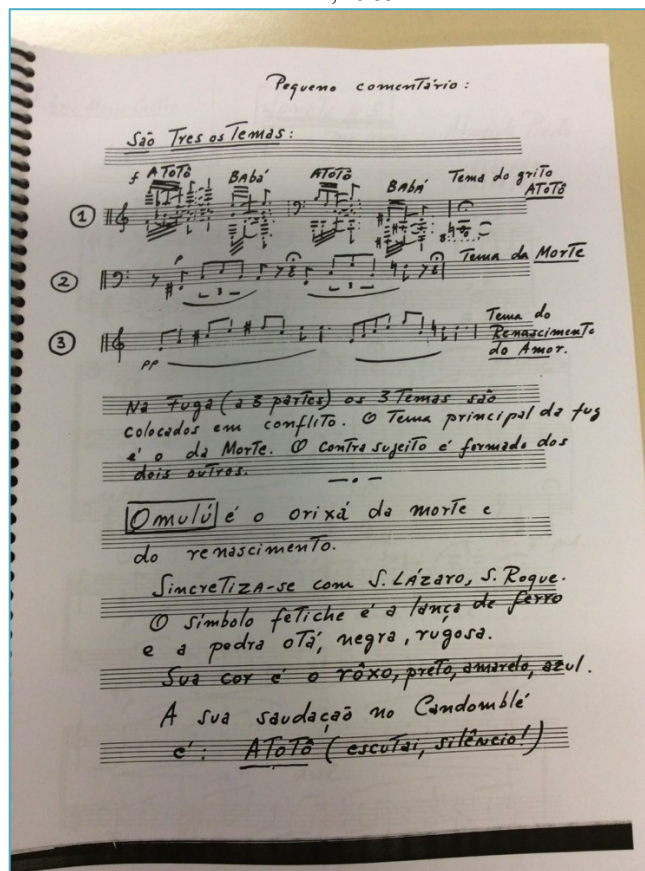 Pequeno comentário:
São Tres os Temas:
f ATOTÔ BAbá ATOTÔ BAbÁ Tema do grito
ATOTÔ
1
2 P 3 3 Tema da Morte
3 pp Tema do
Renascimento
do Amor.
Na Fuga (a 3 partes) os 3 Temas são
colocados em conflito. O Tema principal da fug
é o da Morte. O contra sujeito é formado dos
dois outros.
Omulú é o orixá da morte e
do renascimento.
Sincretiza-se com S. LÁzaro, S. Roque.
O símbolo fetiche é a lança de ferro
e a pedra otá, negra, rugosa.
Sua cor é o rôxo, preto, amarelo, azul.
A sua saudação no Candomblé
é: ATOTÔ (escutai, silêncio!)